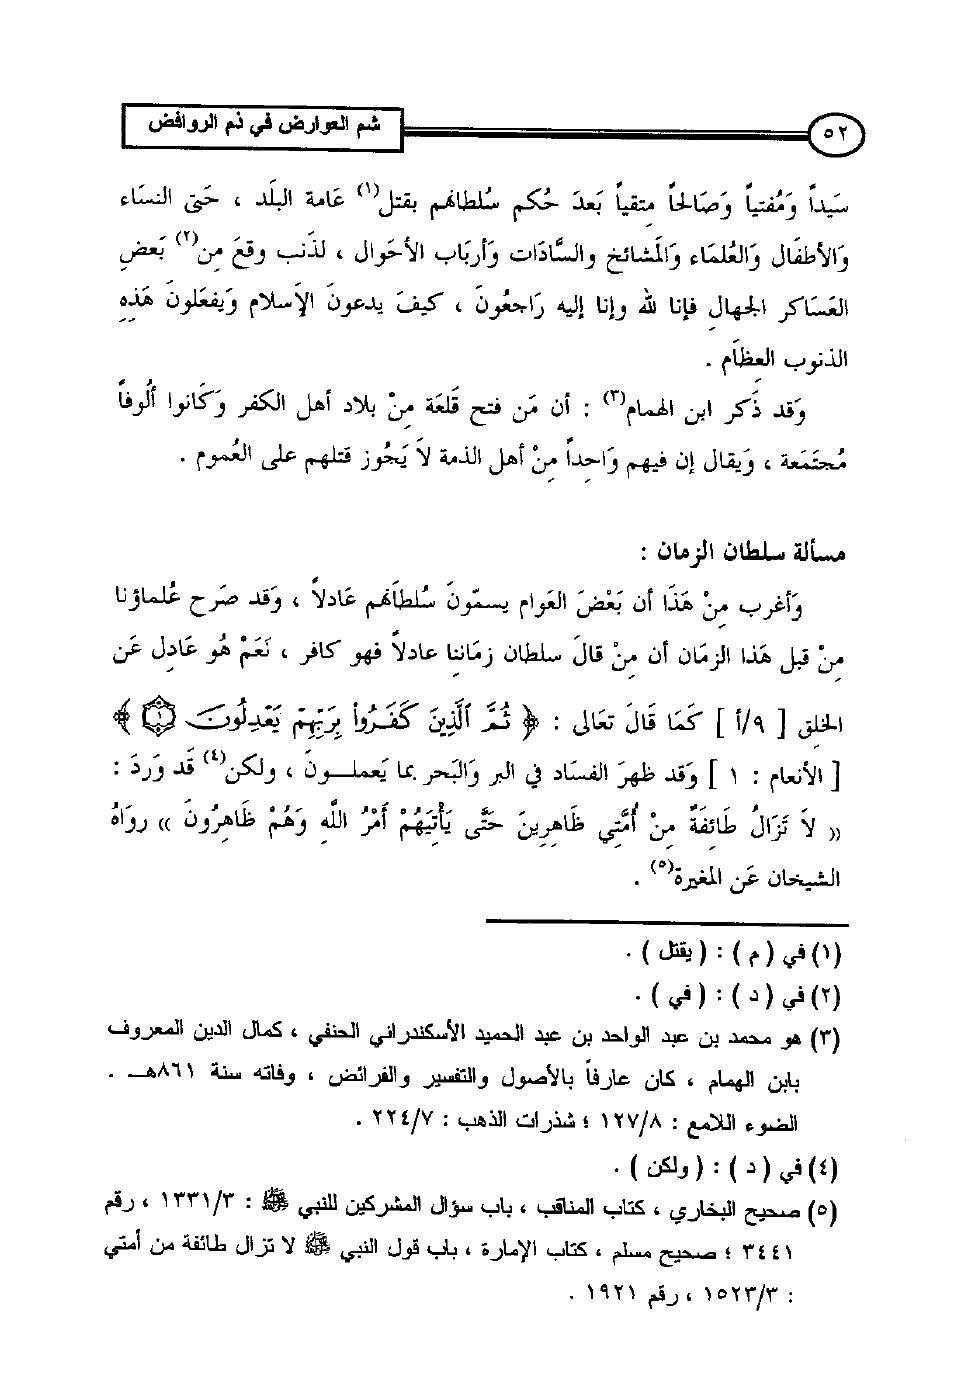 ٥٢
شم العوارض في ذم الروافض
سَيداً وَمُفتياً وَصَالحاً متقياً بَعدَ حُكم سُلطانهم بقتل(١) عَامة البلَد ، حَتى النسَاء
وَالأطفَال وَالعُلماء وَالمَشائخ والسَّادَات وَأربَاب الأحْوال ، لذَنب وقعَ مِن(٢) بَعضِ
العَساكر الجهالِ فإنا لله وإنا إليه رَاجعُونَ ، كيفَ يدعونَ الإسلام وَيفعلونَ هَذهِ
الذنوب العِظَام .
وَقد ذَكر ابن الهمام(٣) : أن مَن فتح قَلعَة مِنْ بلاد أهل الكفر وَكَانوا أُلوفاً
مُجتَمَعة ، وَيقال إن فيهم وَاحِداً مِنْ أهل الذمة لاَ يَجُوز قتلهم على العُموم .
مسألة سلطان الزمان :
وَأغرب مِنْ هَذَا أن بَعْضَ العَوام يسمّونَ سُلطاَنهم عَادلاً ، وَقد صَرح عُلماؤنا
مِنْ قبل هَذا الزمان أن مِنْ قالَ سلطان زمَاننا عادلاً فهو كافر ، نَعَمْ هُو عَادِل عَن
الخلق [ ٩/أ ] كَمَا قَالَ تعَالى : ﴿ ثُمَّ ٱلَّذِينَ كَفَرُواْ بِرَبِّهِمْ يَعْدِلُونَ ۝١ ﴾
[ الأنعام : ١ ] وَقد ظهرَ الفسَاد في البر وَالبَحر بما يَعملــونَ ، ولكن(٤) قَد وَردَ :
« لاَ تَزَالُ طَائفَةٌ مِنْ أُمَّتِي ظَاهِرِينَ حَتَّى يَأْتِيَهُمْ أَمْرُ اللهِ وَهُمْ ظَاهِرُونَ » روَاهُ
الشيخان عَن المغيرة(٥) .
(١) في ( م ) : ( يقتل ) .
(٢) في ( د ) : ( في ) .
(٣) هو محمد بن عبد الواحد بن عبد الحميد الأسكندراني الحنفي ، كمال الدين المعروف
بابن الهمام ، كان عارفاً بالأصول والتفسير والفرائض ، وفاته سنة ٨٦١هــ .
الضوء اللامع : ١٢٧/٨ ؛ شذرات الذهب : ٢٢٤/٧ .
(٤) في ( د ) : ( ولكن ) .
(٥) صحيح البخاري ، كتاب المناقب ، باب سؤال المشركين للنبي ﷺ : ١٣٣١/٣ ، رقم
٣٤٤١ ؛ صحيح مسلم ، كتاب الإمارة ، باب قول النبي ﷺ لا تزال طائفة من أمتي
: ١٥٢٣/٣ ، رقم ١٩٢١ .